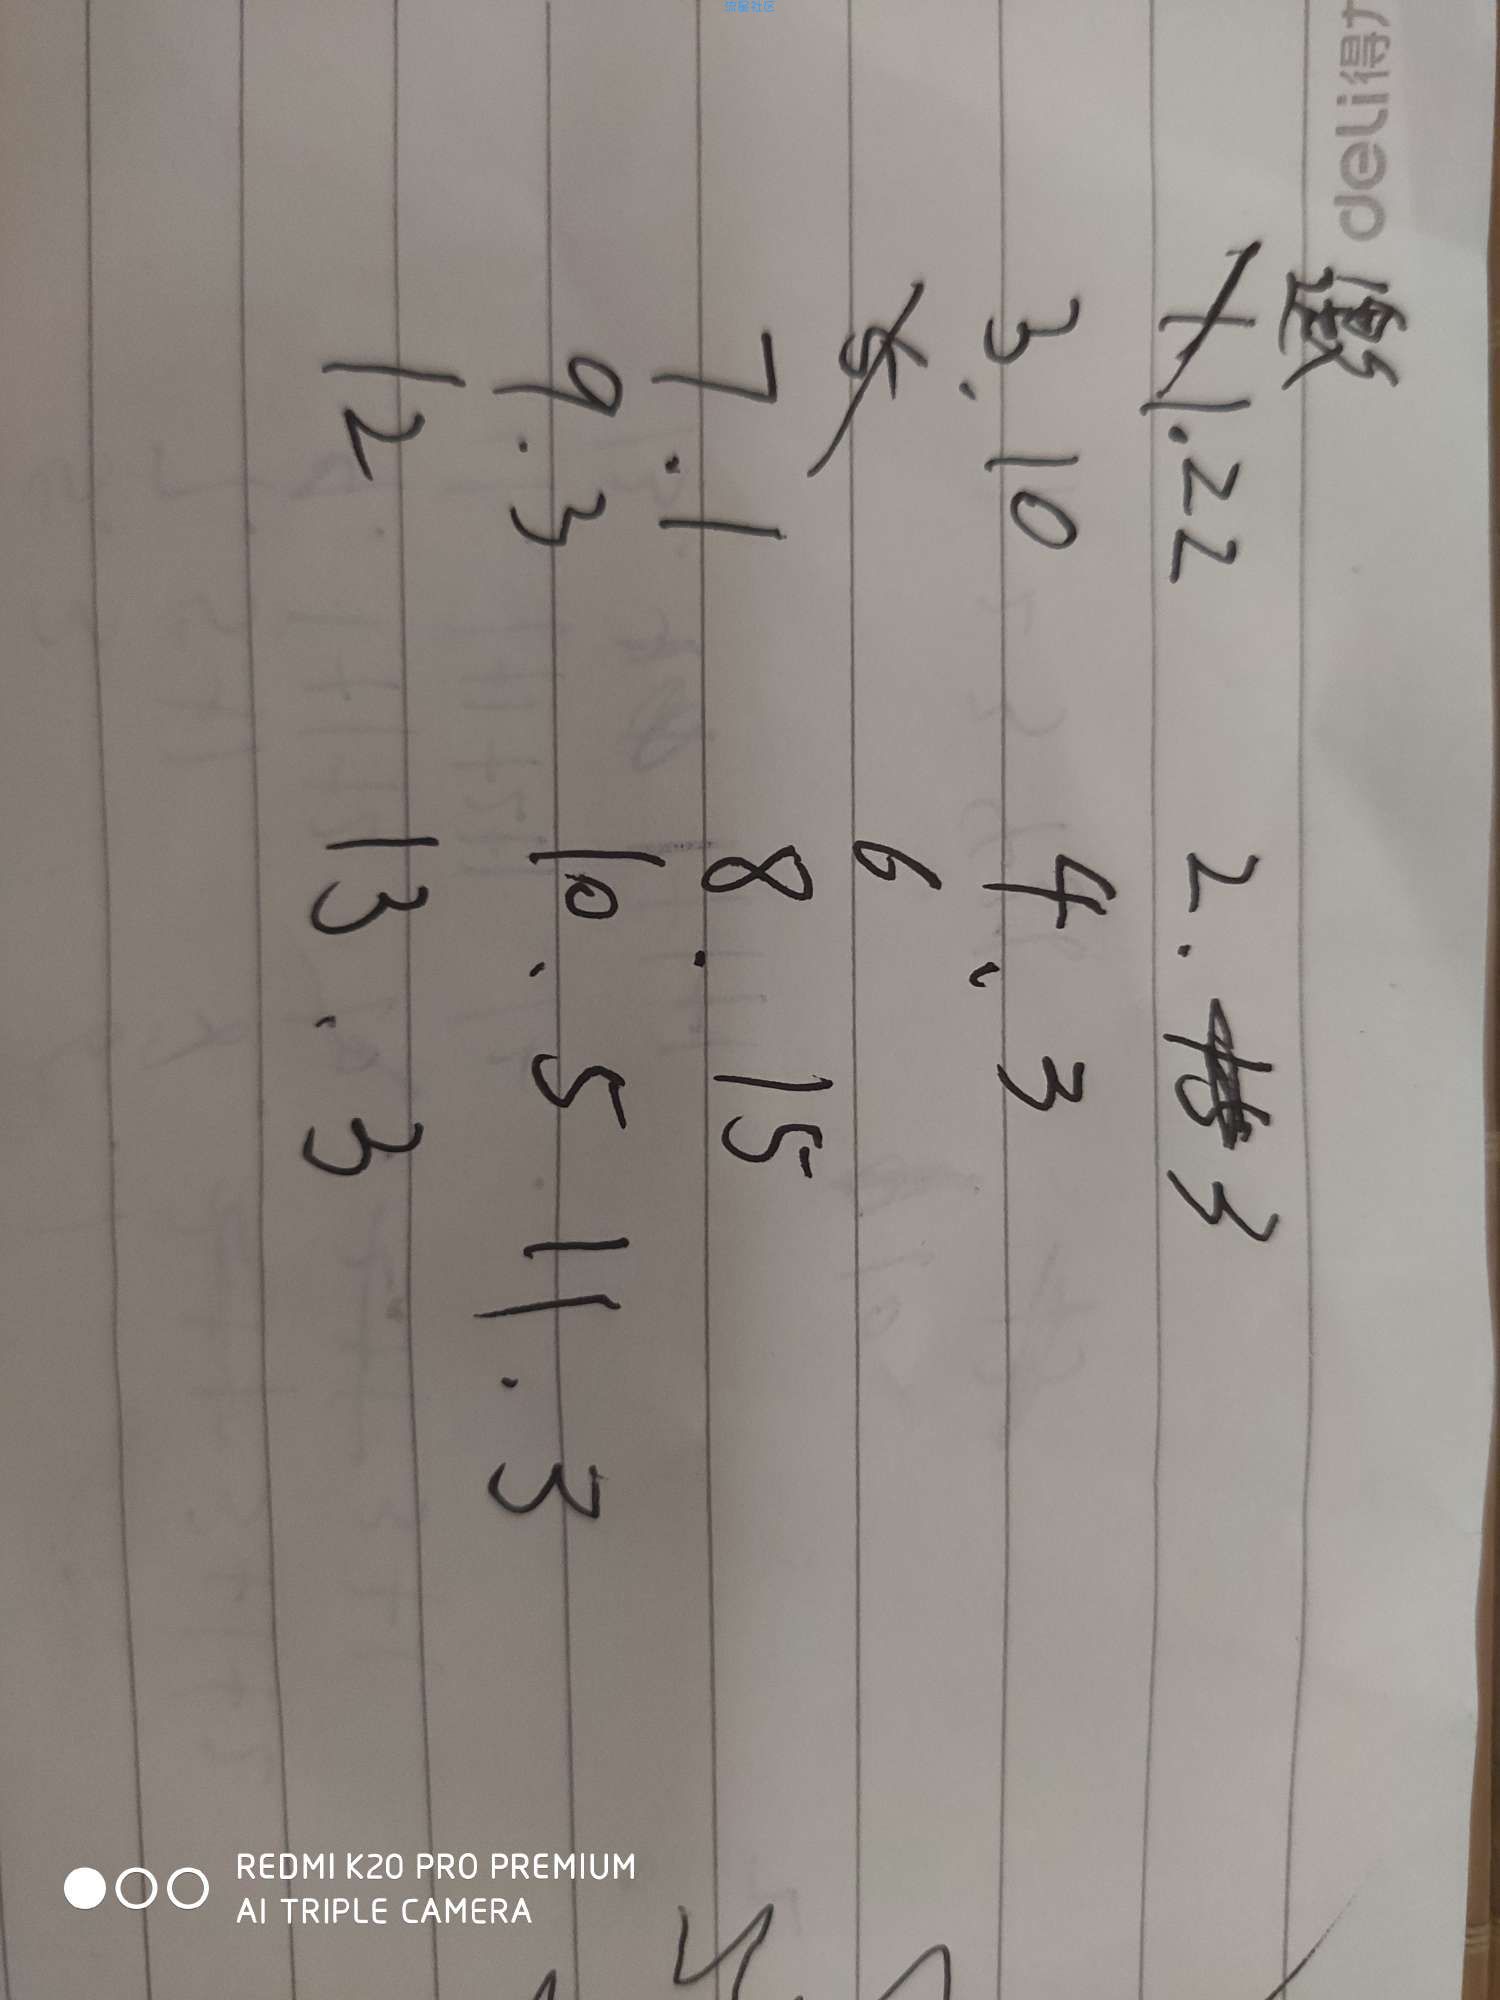 deli得力
1.22 2. 3
3. 10 4. 3
5 6
7. 1 8. 15
9. 3 10. 5 11. 3
12 13. 3
流星社区
REDMI K20 PRO PREMIUM
AI TRIPLE CAMERA